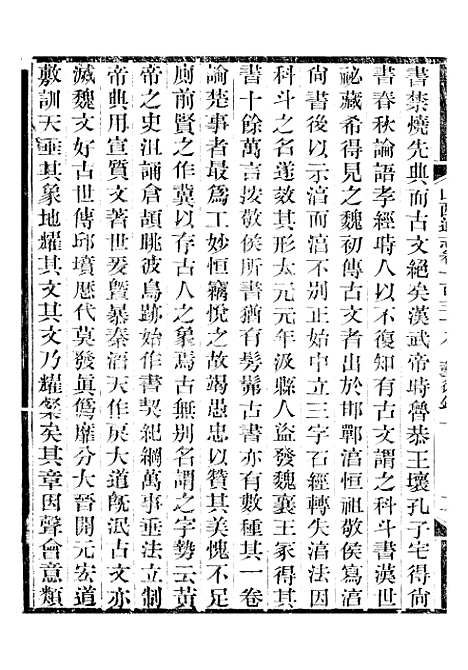 書焚燒先典而古文絕矣漢武帝時魯恭王壞孔子宅得尙
書春秋論語孝經時人以不復知有古文謂之科斗書漢世
祕藏希得見之魏初傳古文者出於邯鄲淳恒祖敬侯寫淳
尙書後以示淳而淳不別正始中立三字石經轉失淳法因
科斗之名遂效其形太元元年汲縣人盜發魏襄王冢得其
書十餘萬言按敬侯所書猶有髣髴古書亦有數種其一卷
論楚事者最爲工妙恒竊悅之故竭愚忠以贊其美愧不足
廁前賢之作冀以存古人之象焉古無別名謂之字勢云黃
帝之史沮誦倉頡眺彼鳥跡始作書契紀綱萬事垂法立制
帝典用宣質文著世爰曁暴秦滔天作戾大道旣泯古文亦
滅魏文好古世傳邱墳歷代莫發眞僞靡分大晉開元宏道
敷訓天垂其象地耀其文其文乃耀粲矣其章因聲會意類